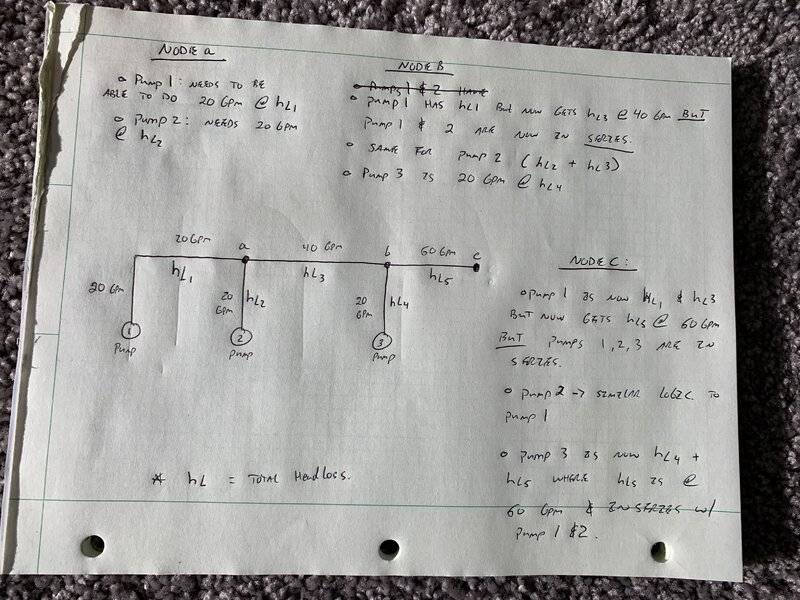 NODE a
o Pump 1: NEEDS TO BE
ABLE TO DO 20 GPM @ hL1
o Pump 2: NEEDS 20 GPM
@ hL2
NODE B
o Pumps 1 & 2 HAVE
o Pump 1 HAS hL1 BUT NOW GETS hL3 @ 40 GPM BUT
Pump 1 & 2 ARE NOW IN SERIES.
o SAME FOR PUMP 2 (hL2 + hL3)
o Pump 3 IS 20 GPM @ hL4
20 GPM a 40 GPM b 60 GPM c
hL1 hL3 hL5
20 GPM
20
GPM
hL2
20
GPM
hL4
1
Pump
2
Pump
3
Pump
* hL = TOTAL HEADLOSS.
NODE C:
o Pump 1 IS NOW hL1 & hL3
BUT NOW GETS hL5 @ 60 GPM
BUT PUMPS 1,2,3 ARE IN
SERIES.
o Pump 2 → SIMILAR LOGIC TO
Pump 1
o Pump 3 IS NOW hL4 +
hL5 WHERE hL5 IS @
60 GPM & IN SERIES w/
Pump 1 & 2.